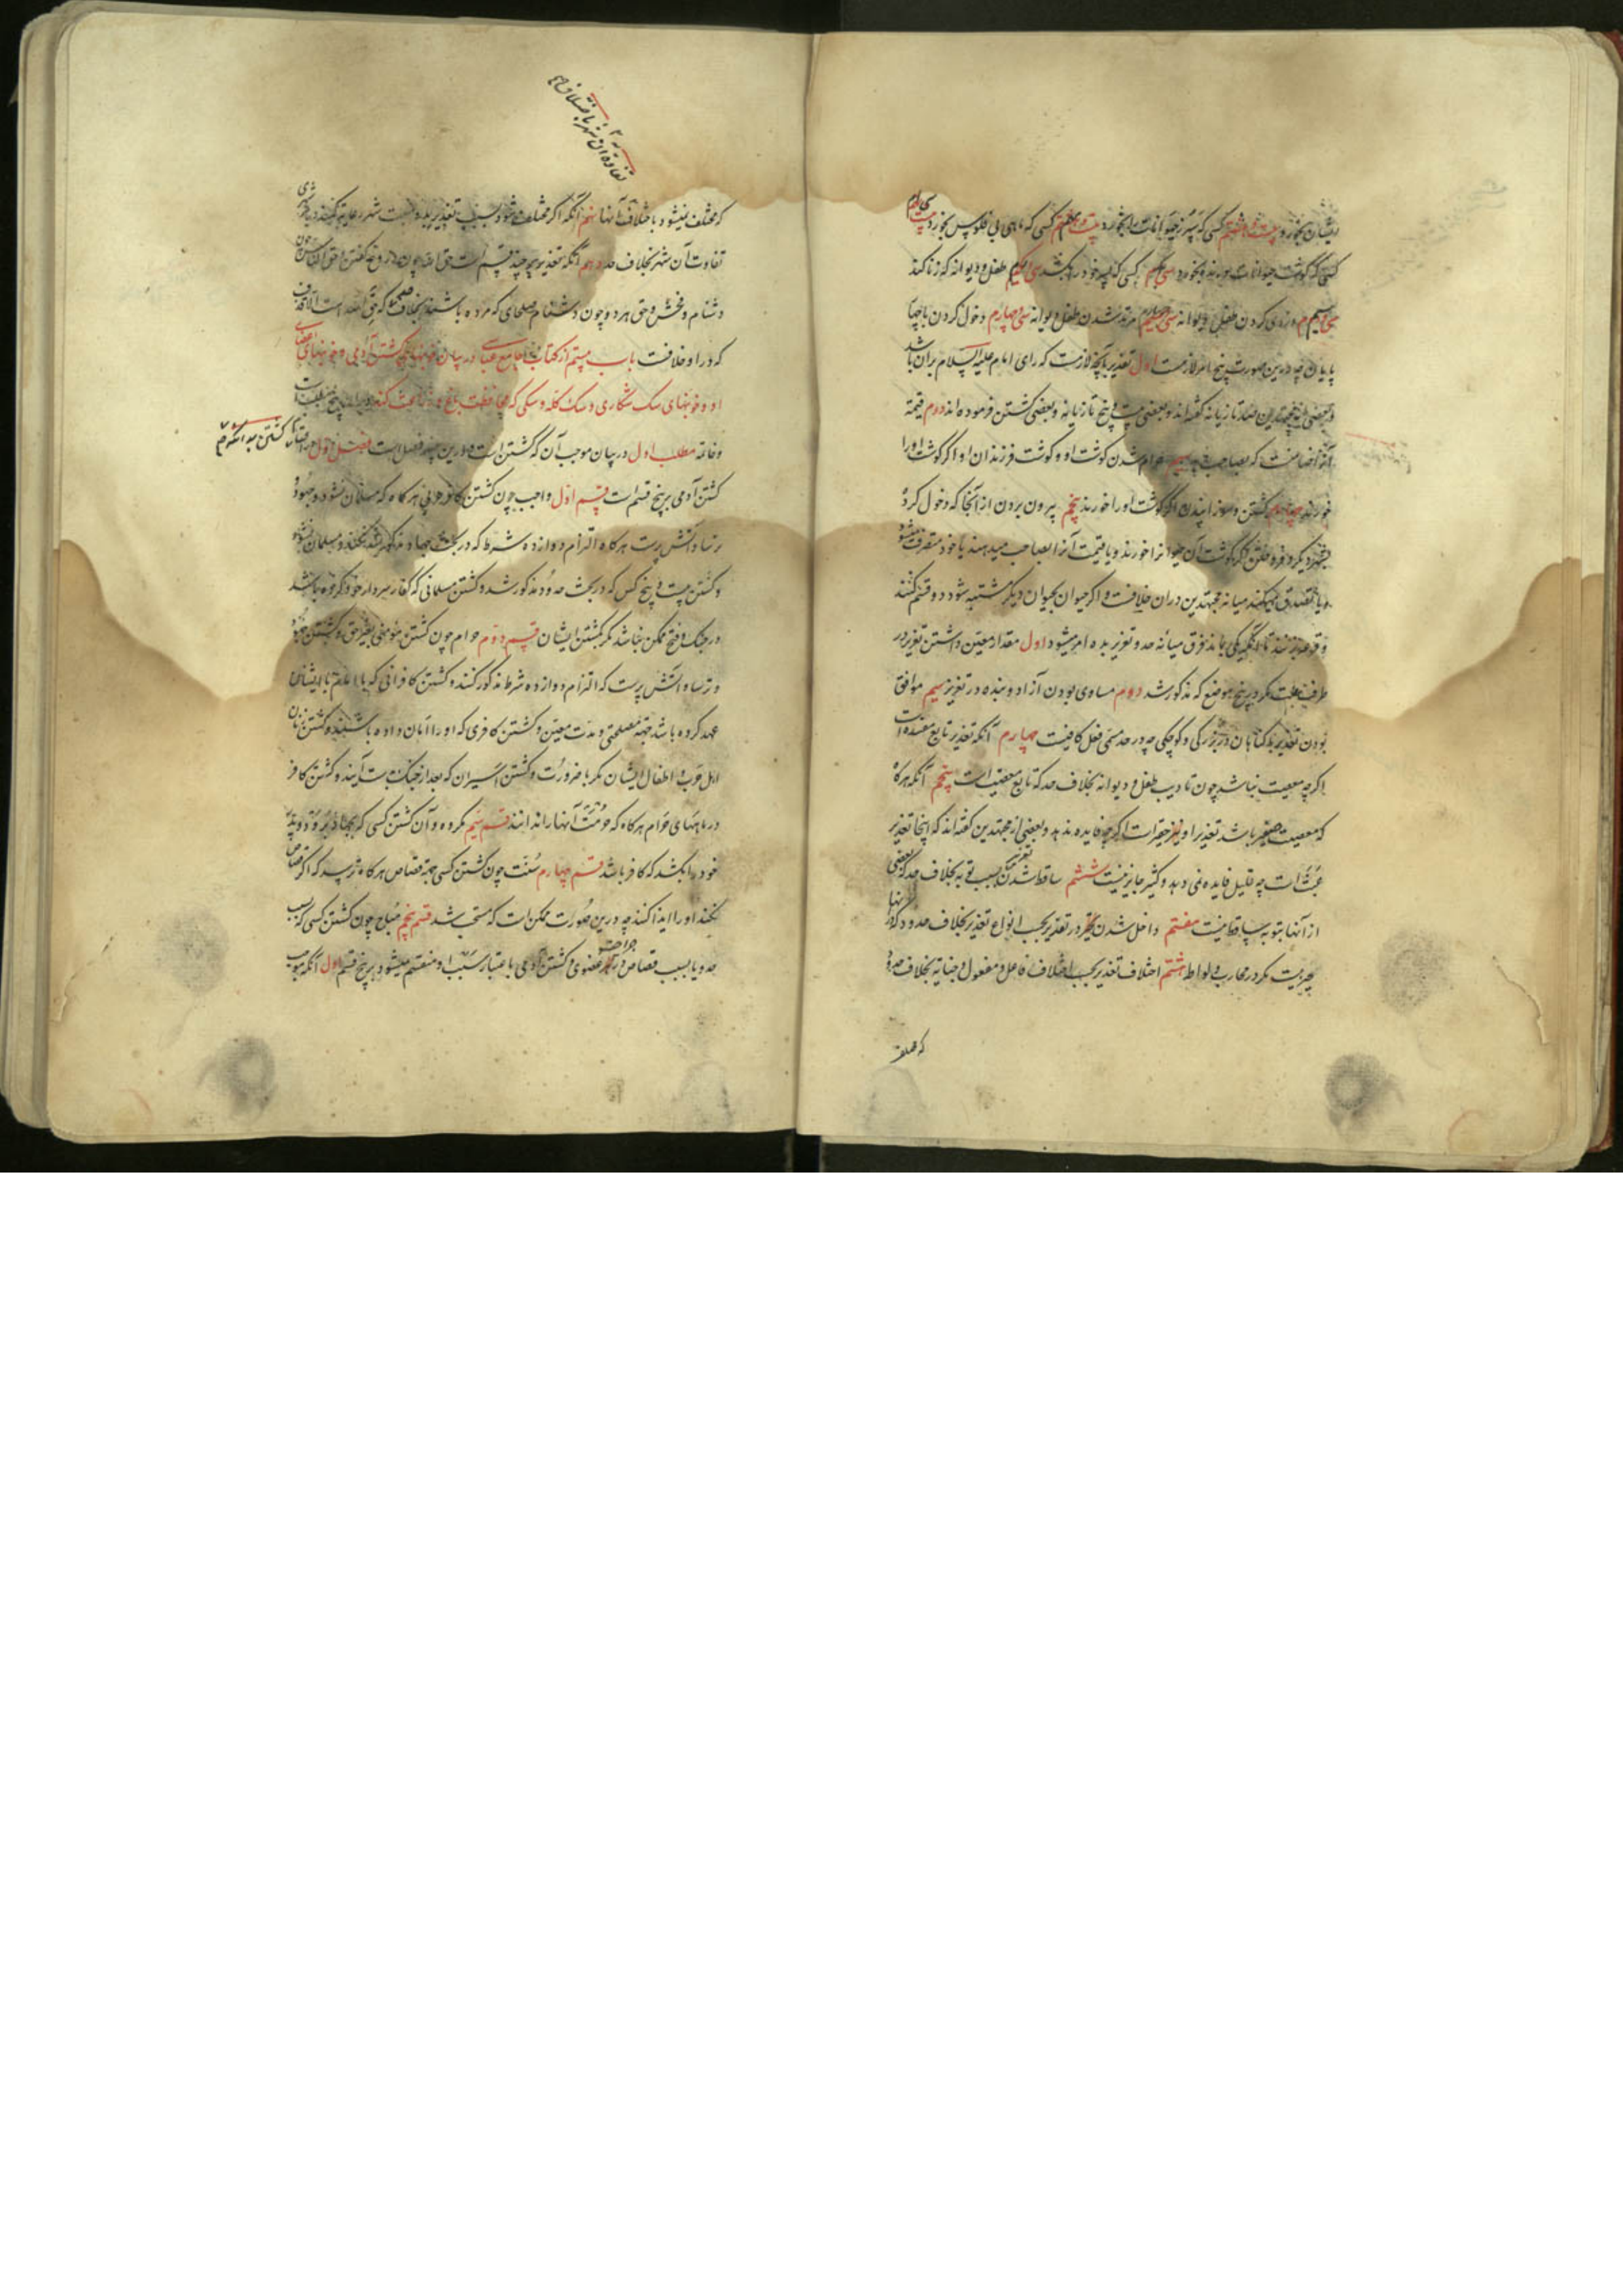 ایشان بخورد بیست و هشتم کسی که سپرز حیوانات را بخورد بیست و نهم کسی که ماهی بی فلوس بخورد
کسی که گوشت حیوانات بخورد کسی که خود را بکشد طفل و دیوانه که زنا کند
دزدی کردن طفل و دیوانه مرتد شدن طفل و دیوانه سی و چهارم دخول کردن با چهار
پایان چه درین صورت پنج امر لازمست اول تعذیر بآنچه لازمست که رای امام علیه السلام بران باشد
و بعضی از مجتهدین صد تازیانه گفته‌اند و بعضی بیست و پنج تازیانه و بعضی کشتن فرموده‌اند دوم قیمة
آنرا ضامنست که بصاحبش بدهد سیم حرام شدن گوشت او و گوشت فرزندان او اگر گوشت او را
خورند چهارم کشتن و سوزانیدن اگر گوشت او را خورند پنجم بیرون بردن از آنجا که دخول کرد
بشهر دیگر و فروختن اگر گوشت آن حیوانرا خورند و یا قیمت آنرا بصاحب میدهند یا خود متصرف میشود
و یا تصدق میکنند میانه مجتهدین در آن خلافست و اگر حیوان بحیوان دیگر مشتبه شود دو قسم کنند
و قرعه زنند تا آنکه یکی بماند فرق میانه حد و تعزیر بده امر میشود اول مقدار معین داشتن تعزیر در
طرف قلت مگر در پنج موضع که مذکور شد دوم مساوی بودن آزاد و بنده در تعزیر سیم موافق
بودن تعذیر بگناهان در بزرگی و کوچکی چه در حد مسمی فعل کافیست چهارم آنکه تعذیر تابع مفسده است
اگر چه معصیت نباشد چون تادیب طفل و دیوانه بخلاف حد که تابع معصیت است پنجم آنکه هرگاه
که معصیت صغیر باشد تعذیر او نیز حقیر است اگر چه فایده ندهد و بعضی از مجتهدین گفته‌اند که اینجا تعذیر
عبث است چه قلیل فایده نمی دهد و کثیر جایز نیست ششم ساقط شدن تعذیر بسبب توبه بخلاف حد که بعضی
از آنها بتوبه ساقط نیست هفتم داخل شدن تخیر در تعذیر بحسب انواع تعذیر بخلاف حدود که در آنها
تخییر نیست مگر در محارب و لواط هشتم اختلاف تعذیر بحسب اختلاف فاعل و مفعول و جنایه بخلاف حدود
که مختلف
تفاوت آن شهر باختلاف
که مختلف نمیشود باختلاف آنها نهم آنکه اگر مختلف شود بسبب تعذیر بلده نسبت شهر رعایة کنند
تفاوت آن شهر بخلاف حد دهم آنکه تعذیر بر چند قسم است حق الله چون دروغ گفتن و حق الناس چون
دشنام و فحش و حق هر دو چون دشنام صلحای که مرده باشند بخلاف حد که حق الله است الا قذف
که در او خلافست باب بیستم از کتاب جامع عباسی در بیان خونبهای کشتن آدمی و خونبهای اعضای
او و خونبهای سک شکاری و سک کله و سکی که محافظت باغ و زراعت کند و در آن پنج مطلب است
و خاتمه مطلب اول در بیان موجب آن که کشتن است و درین چند فصل است فصل اول در اقسام کشتن بدانکه
کشتن آدمی بر پنج قسم است قسم اول واجب چون کشتن کافر حربی هرگاه که مسلمان نشود و جهود و
ترسا و آتش پرست هرگاه التزام دوازده شرط که در بحث جهاد مذکور شد نکنند و مسلمان نشوند
و کشتن بیست و پنج کس که در بحث حدود مذکور شد و کشتن مسلمانی که کفار سپر دار خود کرده باشند
در جنک و فتح ممکن نباشد مگر بکشتن ایشان قسم دوم حرام چون کشتن مؤمنی بغیر حق و کشتن جهود
و ترسا و آتش پرست که التزام دوازده شرط مذکور کنند و کشتن کافرانی که با امام با ایشان
عهد کرده باشد جهة مصلحتی و مدت معین و کشتن کافری که او را امان داده باشند و کشتن زنان
اهل حرب و اطفال ایشان مگر با ضرورت و کشتن اسیران که بعد از جنک بدست آیند و کشتن کافر
در ماههای حرام هرگاه که حرمت آنها را دانند قسم سیم مکروه و آن کشتن کسی که بجهاد رود و پدر
خود را بکشد که کافر باشد قسم چهارم سنت چون کشتن کسی جهة قصاص هرگاه ترسد که اگر قصاص
نکند او را ایذا کنند چه درین صورت ممکن است که مستحب شد قسم پنجم مباح چون کشتن کسی که بسبب
حد و یا بسبب قصاص در جراحت عضوی و کشتن آدمی باعتبار سبب او منقسم میشود بر پنج قسم اول آنکه موجب